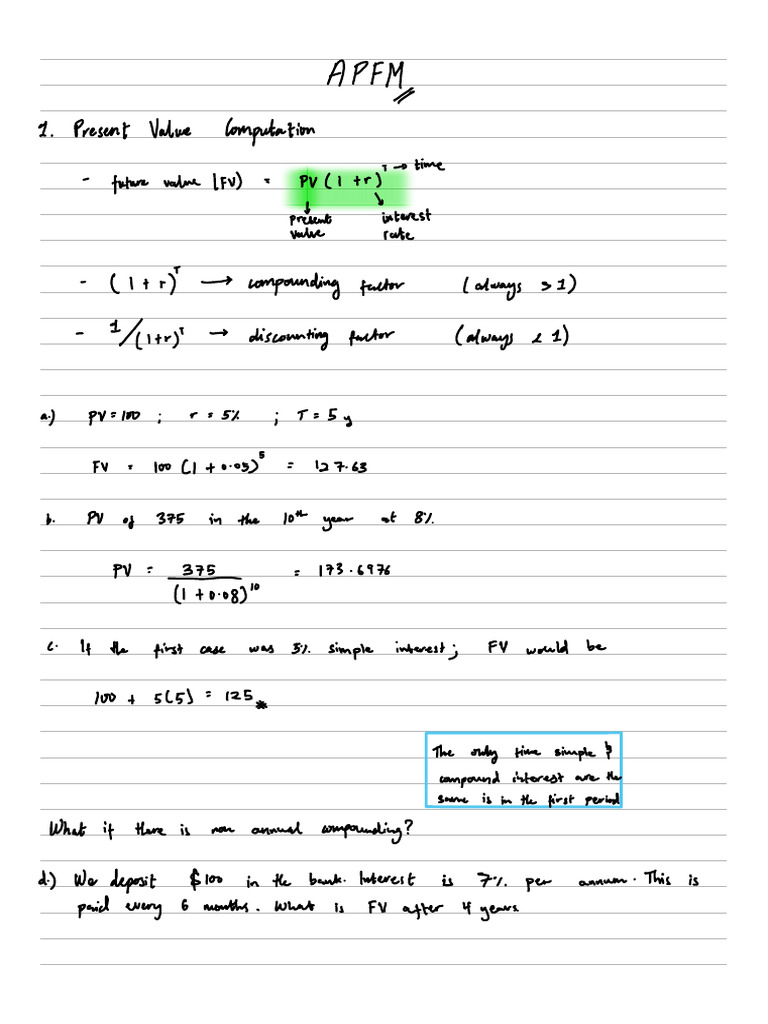 APFM
1. Present Value Computation
- future value (FV) = PV (1 + r)^T → time
present value
interest rate
- (1 + r)^T → compounding factor (always > 1)
- 1/(1+r)^T → discounting factor (always < 1)
a.) PV = 100 ; r = 5% ; T = 5 y
FV = 100 (1 + 0.05)^5 = 127.63
b. PV of 375 in the 10th year at 8%
PV = 375 / (1 + 0.08)^10 = 173.6976
c. If the first case was 5% simple interest; FV would be
100 + 5(5) = 125 *
The only time simple &
compound interest are the
same is in the first period
What if there is non annual compounding?
d.) We deposit $100 in the bank. Interest is 7% per annum. This is
paid every 6 months. What is FV after 4 years.